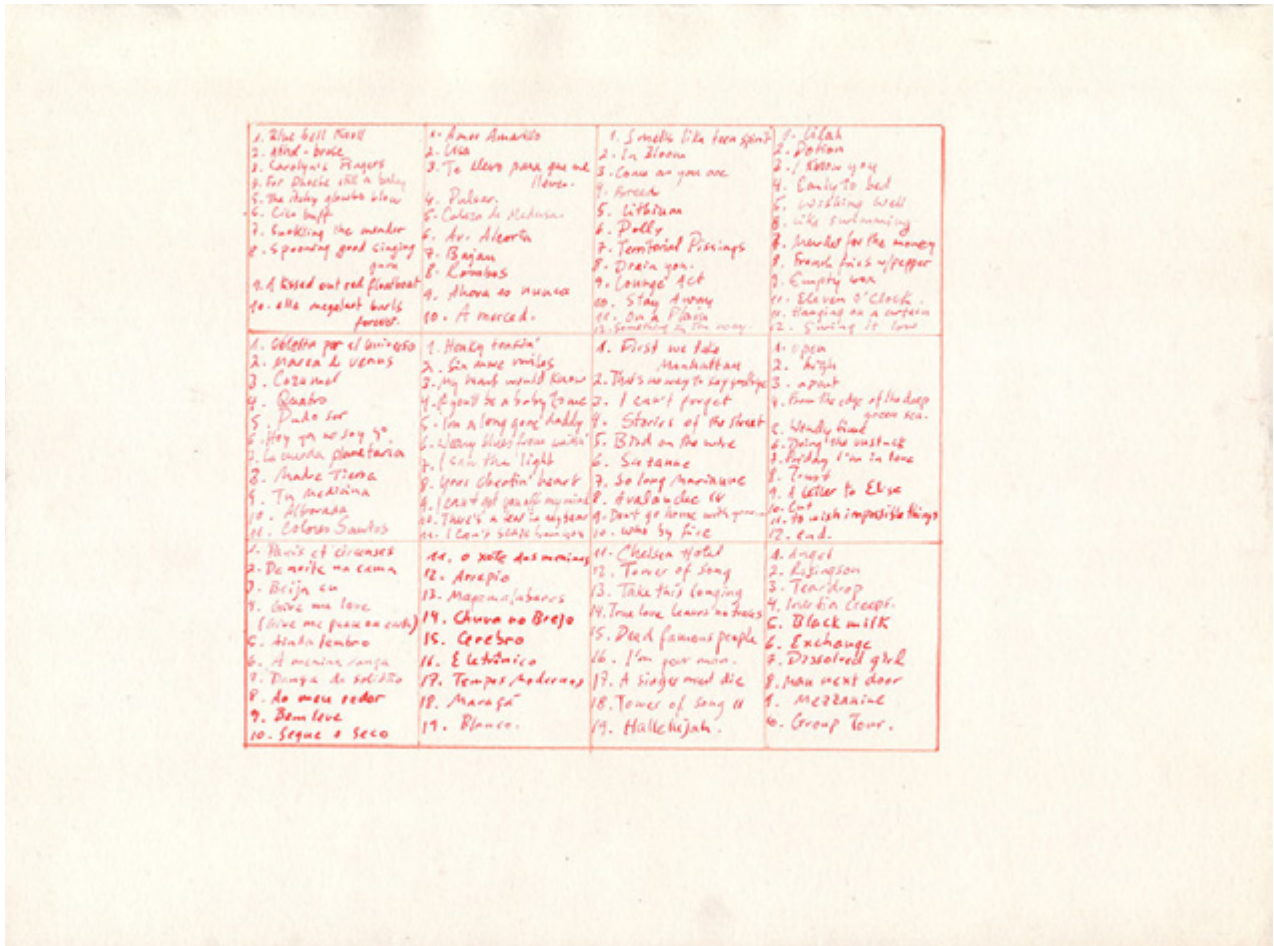 1. Blue bell Knoll
2. Athol-brose
3. Carolyn's Fingers
4. For Phoebe still a baby
5. The itchy glowbo blow
6. Cico buff
7. Suckling the mender
8. Spooning good singing
gum
9. A kissed out red floatboat
10. ella megalast burls
forever.
1. Amor Amarillo
2. Lisa
3. Te llevo para que me
lleves.
4. Pulsar.
5. Cabeza de Medusa.
6. Av. Alcorta
7. Bajan
8. Rombos
9. Ahora es nunca
10. A merced.
1. Smells like teen spirit
2. In Bloom
3. Come as you are
4. Breed
5. Lithium
6. Polly
7. Territorial Pissings
8. Drain you.
9. Lounge Act
10. Stay Away
11. On a Plain
12. Something in the way.
1. Lilah
2. Potion
3. I know you
4. Early to bed
5. Wishing well
6. Like swimming
7. Murder for the money
8. French fries w/pepper
9. Empty box
10. Eleven O'Clock.
11. Hanging on a curtain
12. Swing it low
1. Celeste por el universo
2. Marea de Venus
3. Cozumel
4. Quatro
5. Pudo ser
6. Hey ya no soy yo.
7. La cuerda planetaria
8. Madre Tierra
9. Tu medicina
10. Alborada
11. Colores Santos
1. Honky tonkin'
2. Six more miles
3. My heart would Know
4. If you'll be a baby to me
5. I'm a long gone daddy
6. Weary blues from waitin'
7. I saw the light
8. Your cheatin' heart
9. I can't get you off my mind
10. There's a tear in my beer
11. I can't
1. First we take
Manhattan
2. That's no way to say goodbye
3. I can't forget
4. Stories of the street
5. Bird on the wire
6. Suzanne
7. So long Marianne
8. Avalanche IV
9. Don't go home with your...
10. Who by fire
1. open
2. high
3. apart
4. From the edge of the deep
green sea.
5. Wendy time
6. Doing the unstuck
7. Friday I'm in love
8. Trust
9. A letter to Elise
10. Cut
11. to wish impossible things
12. end.
1. Panis et circenses
2. De noite na cama
3. Beija eu
4. Give me love
(Give me peace on earth)
5. Ainda lembro
6. A menina dança
7. Dança da solidão
8. Ao meu redor
9. Bem leve
10. Segue o Seco
11. O xote das meninas
12. Arrepio
13. Magamalabares
14. Chuva no Brejo
15. Cerebro
16. Eletrônico
17. Tempos Modernos
18. Maraçá
19. Blanco.
11. Chelsea Hotel
12. Tower of song
13. Take this longing
14. True love leaves no traces
15. Dead famous people
16. I'm your man.
17. A singer must die
18. Tower of song II
19. Hallelujah.
1. Angel
2. Risingson
3. Teardrop
4. Inertia Creeps.
5. Black milk
6. Exchange
7. Dissolved girl
8. Man next door
9. Mezzanine
10. Group Four.